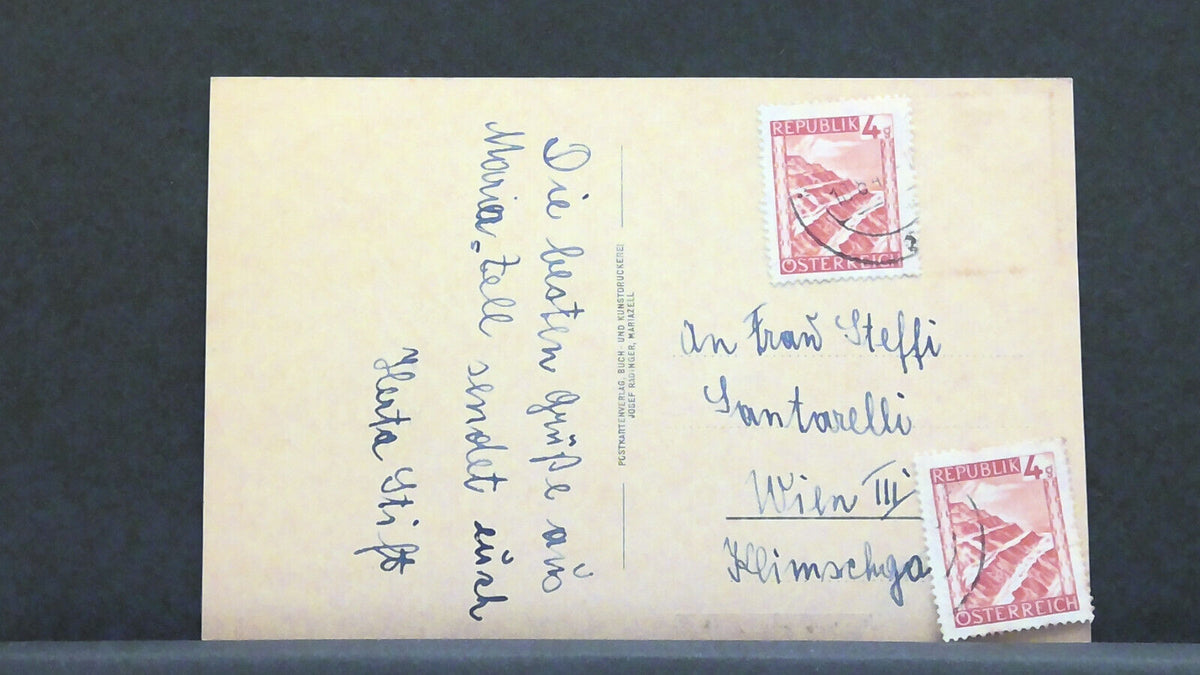 Die besten Grüße aus
Maria=Zell sendet euch
Herta Stift
POSTKARTENVERLAG, BUCH- UND KUNSTDRUCKEREI
JOSEF RADINGER, MARIAZELL
REPUBLIK 4g
ÖSTERREICH
An Frau Steffi
Santarelli
Wien III/
Klimschga
REPUBLIK 4g
ÖSTERREICH